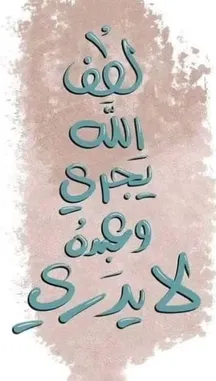 لُطف
اللَّه
يَجري
وعبدهُ
لا يدَري